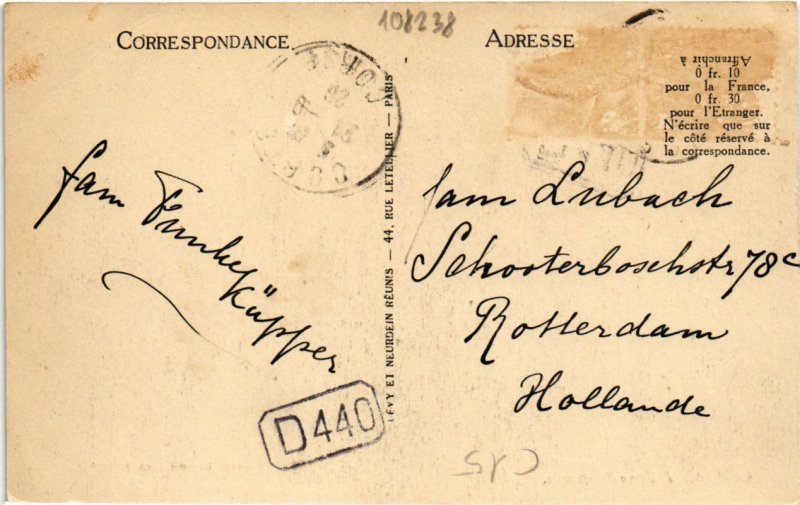 108238
CORRESPONDANCE
ADRESSE
Affranchir à
0 fr. 10
pour la France,
0 fr. 30
pour l'Etranger.
N'écrire que sur
le côté réservé à
la correspondance.
fam
Küpper
fam Lubach
Schooterboschstr 78c
Rotterdam
Hollande
LÉVY ET NEURDEIN RÉUNIS — 44, RUE LETELLIER — PARIS
D440
C15